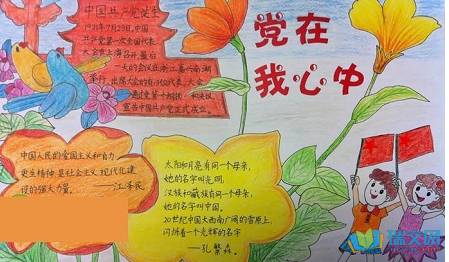 中国共产党诞生
1921年7月23日,中国
共产党第一次全国代表
大会在上海召开,最后
一天的会议在浙江嘉兴南湖
举行,出席大会的有13位代表,大会
通过党第一个纲领和决议,
宣告中国共产党正式成立。
党在
我心中
中国人民的爱国主义和自力
更生精神是社会主义现代化建
设的强大力量。
——江泽民
太阳和月是有同一个母亲,
她的名字叫光明,
汉族和藏族有同一个母亲,
她的名字叫中国,
20世纪中国大西南广阔的高原上,
闪烁着一个光辉的名字
——孔繁森
瑞文网